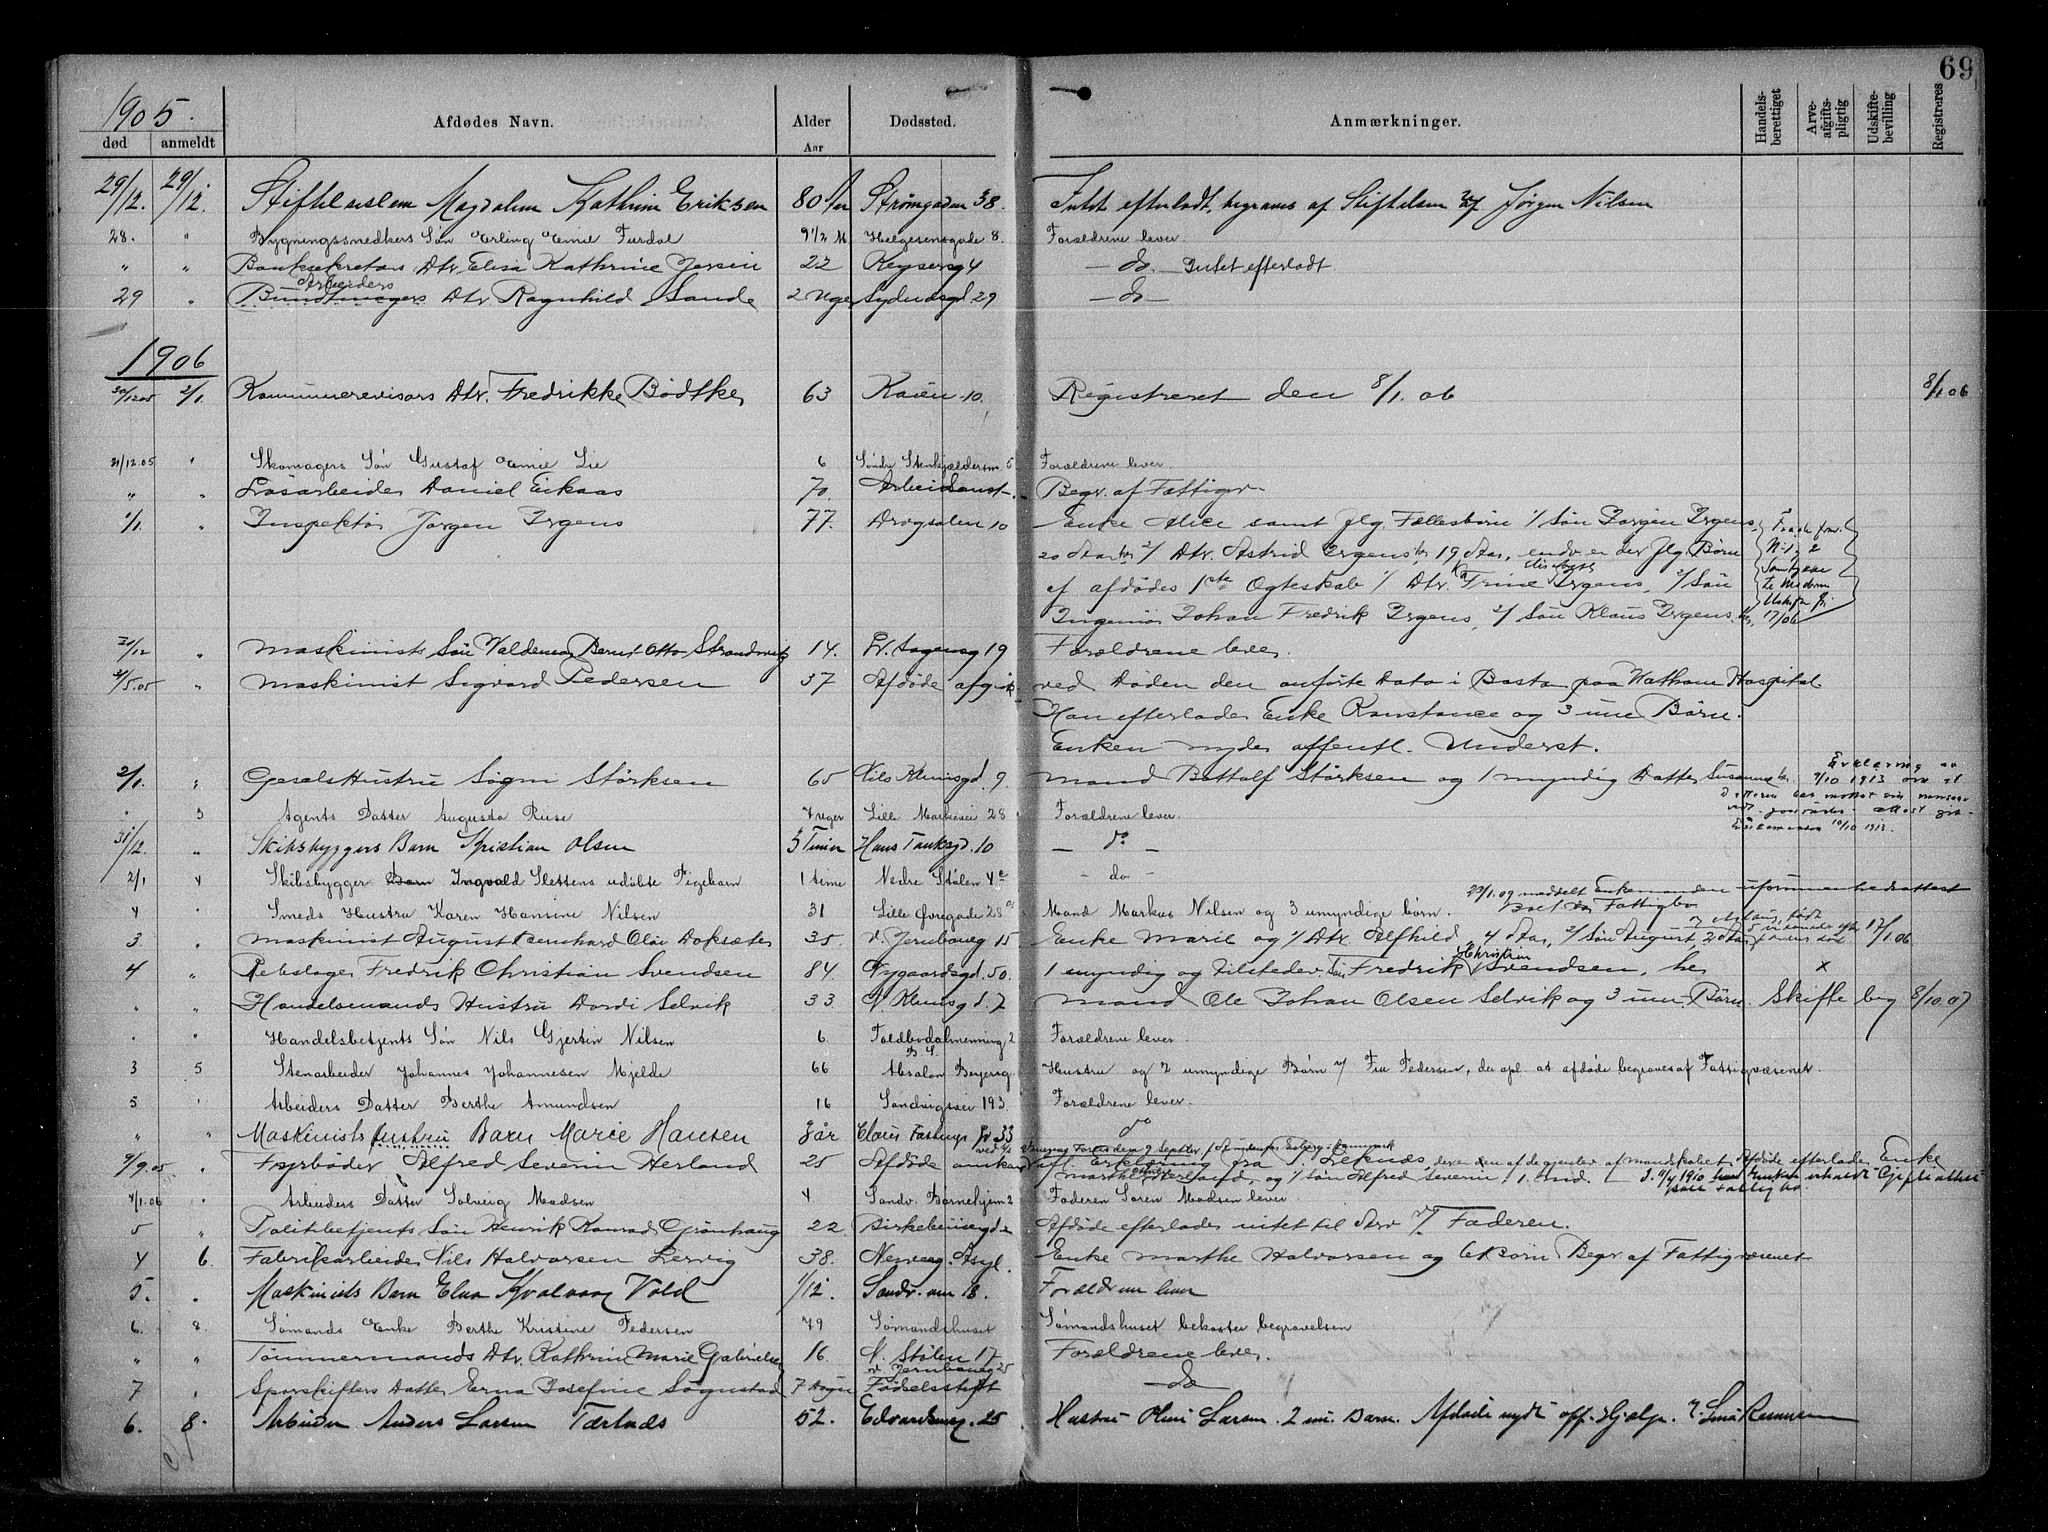 69
1905.
død anmeldt Afdødes Navn. Alder Aar Dødssted. Anmærkninger. Handelsberettiget Arveafgiftspligtig Udskiftebevilling Registreres
29/12. 29/12. Stiftelseslem Magdalene Kathrine Eriksen 80 Aar Strømgaden 38. Intet efterladt, begraves af Stiftelsen v/ Jørgen Nilsen
28. " Bygningssnedkers Søn Erling Emil Furdal 9 1/2 M Helgesensgade 8. Forældrene lever
" " Banksekretærs Dtr. Elisa Kathrine Jersin 22 Keysersg 4 — do. — Intet efterladt.
Arbeiders
29 " Bundtmagers Dtr Ragnhild Sande 2 Uger Sydnesgd 29 — do —
1906
30/12 05 2/1. Kommunerevisors Dtr. Fredrikke Bødtker 63 Kaien 10. Registreret den 8/1. 06 8/1 06
31/12.05 " Skomagers Søn Gustaf Emil Lie 6 Søndre Stenkjeldersm. 5 Forældrene lever
" " Løsarbeider Daniel Eikaas 70. Arbeidsanst. Begr. af Fattigv
1/1. " Inspektør Jørgen Irgens 77. Dregsalm 10 Enke Alice samt flg. Fællesbørn 1/ Søn Jørgen Irgens,
20 Aar her 2/ Dtr. Astrid Irgens her, 19 Aar, endv. er der flg. Børn
af afdødes 1ste Ægteskab 1/ Dtr. Trine Irgens, 2/ Søn
Ingeniør Johan Fredrik Irgens, 3/ Søn Klaus Irgens her,
17/06
30/12 " Maskinists Søn Valdemar Bernt Otto Strandvik 14. Lr. Aagensg 19 Forældrene lever.
5/5.05 " Maskinist Sigvard Pedersen 37 Afdøde afgik ved Døden den anførte Dato i Boston paa Hospital
Han efterlader Enke Konstance og 3 um Børn.
Enken nyder offentl. Underst.
2/1. " Gesels Hustru Søgni Størksen 65 Nils Klimsgd. 9 Mand Bottolf Størksen og 1 myndig Datter Susanne her.
Erklæring av 7/10 1913 om at
10/10 1913.
" 3 Agents Datter Augusta Riise 7 Uger Lille Markevei 28 Forældrene lever
31/12. " Skibsbyggers Barn Kristian Olsen 5 Timer Hans Tanksgd. 10 — do —
2/1 4 Skibsbygger Barn Ingvald Slettens udøbte Pigebarn 1 time Nedre Stølen 4e — do —
23/1.09 meddelt Enkemanden
Boet var Fattigbo
4 " Smeds Hustru Karen Hansine Nilsen 31 Lille Øvregade 28a Mand Markus Nilsen og 3 umyndige børn.
3. " Maskinist August Bernhard Olai Doksæter 35. v. Jernbaneg 15 Enke Marie og 1/ Dtr Alfhild 4 Aar, 2/ Søn August, 2 Aar 17/1 06
4 " Rebslager Fredrik Christian Svendsen 84. Nygaardsgd. 50. 1 myndig og tilstedev. Søn Fredrik Christian Svendsen, her x
" " Handelsmands Hustru Dordi Selvik 33 N. Klimsgd. 7 Mand Ole Johan Olsen Selvik og 3 um. Børn. Skifte beg 8/10.07
" " Handelsbetjents Søn Nils Gjertin Nilsen 6. Toldbodalmenning 2 Forældrene lever
3 5 Stenarbeider Johannes Johannesen Mjelde 66 Absalon Beyersg. Hustru og 2 umyndige Børn v/ Fru Pedersen, der opl. at afdøde begraves af Fattigvæsenet.
5 " Arbeiders Datter Berthe Amundsen 16 Sandvigsvei 193. Forældrene lever.
" " Maskinists Hustru Barn Marie Hansen 7 år Claus Fastings gr 33 do
9/9.05 " Fyrbøder Alfred Severin Herland 25 Afdøde omkom
4/1.06 " Arbeiders Datter Solveig Madsen 4 Sandv. Børnehjem 2 Faderen Søren Madsen lever
5 " Politibetjents Søn Henrik Konrad Grønhaug 22. Birkebeinergd Afdøde efterlader intet til Arv v/ Faderen.
4 6. Fabrikarbeider Nils Halvorsen Lervig 38. Neveng. Asyl. Enke Marthe Halvorsen og 6 Børn Begr. af Fattigvæsenet
5. " Maskinists Barn Elna Kvalvaag Vold 1/12. Sandv.vn 18. Forældrene lever
6. 8. Sømands Enke Berthe Kristine Pedersen 79 Sømandshuset Sømandshuset bekoster begravelsen
" " Tømmermands Dtr. Kathrine Marie Gabrielsen 16. N. Stølen 17 Forældrene lever.
v. Jernbaneg 25
7 " Sporskifters Datter Erna Josefine Søgnstad 7 Døgn Fødselsstift — do —
6. 8. Arbeider Anders Larsen Tærtnes 52. Edvardsensg. 25 Hustru Oline Larsen. 2 um. Børn. Afdøde nydt off. Hjælp.